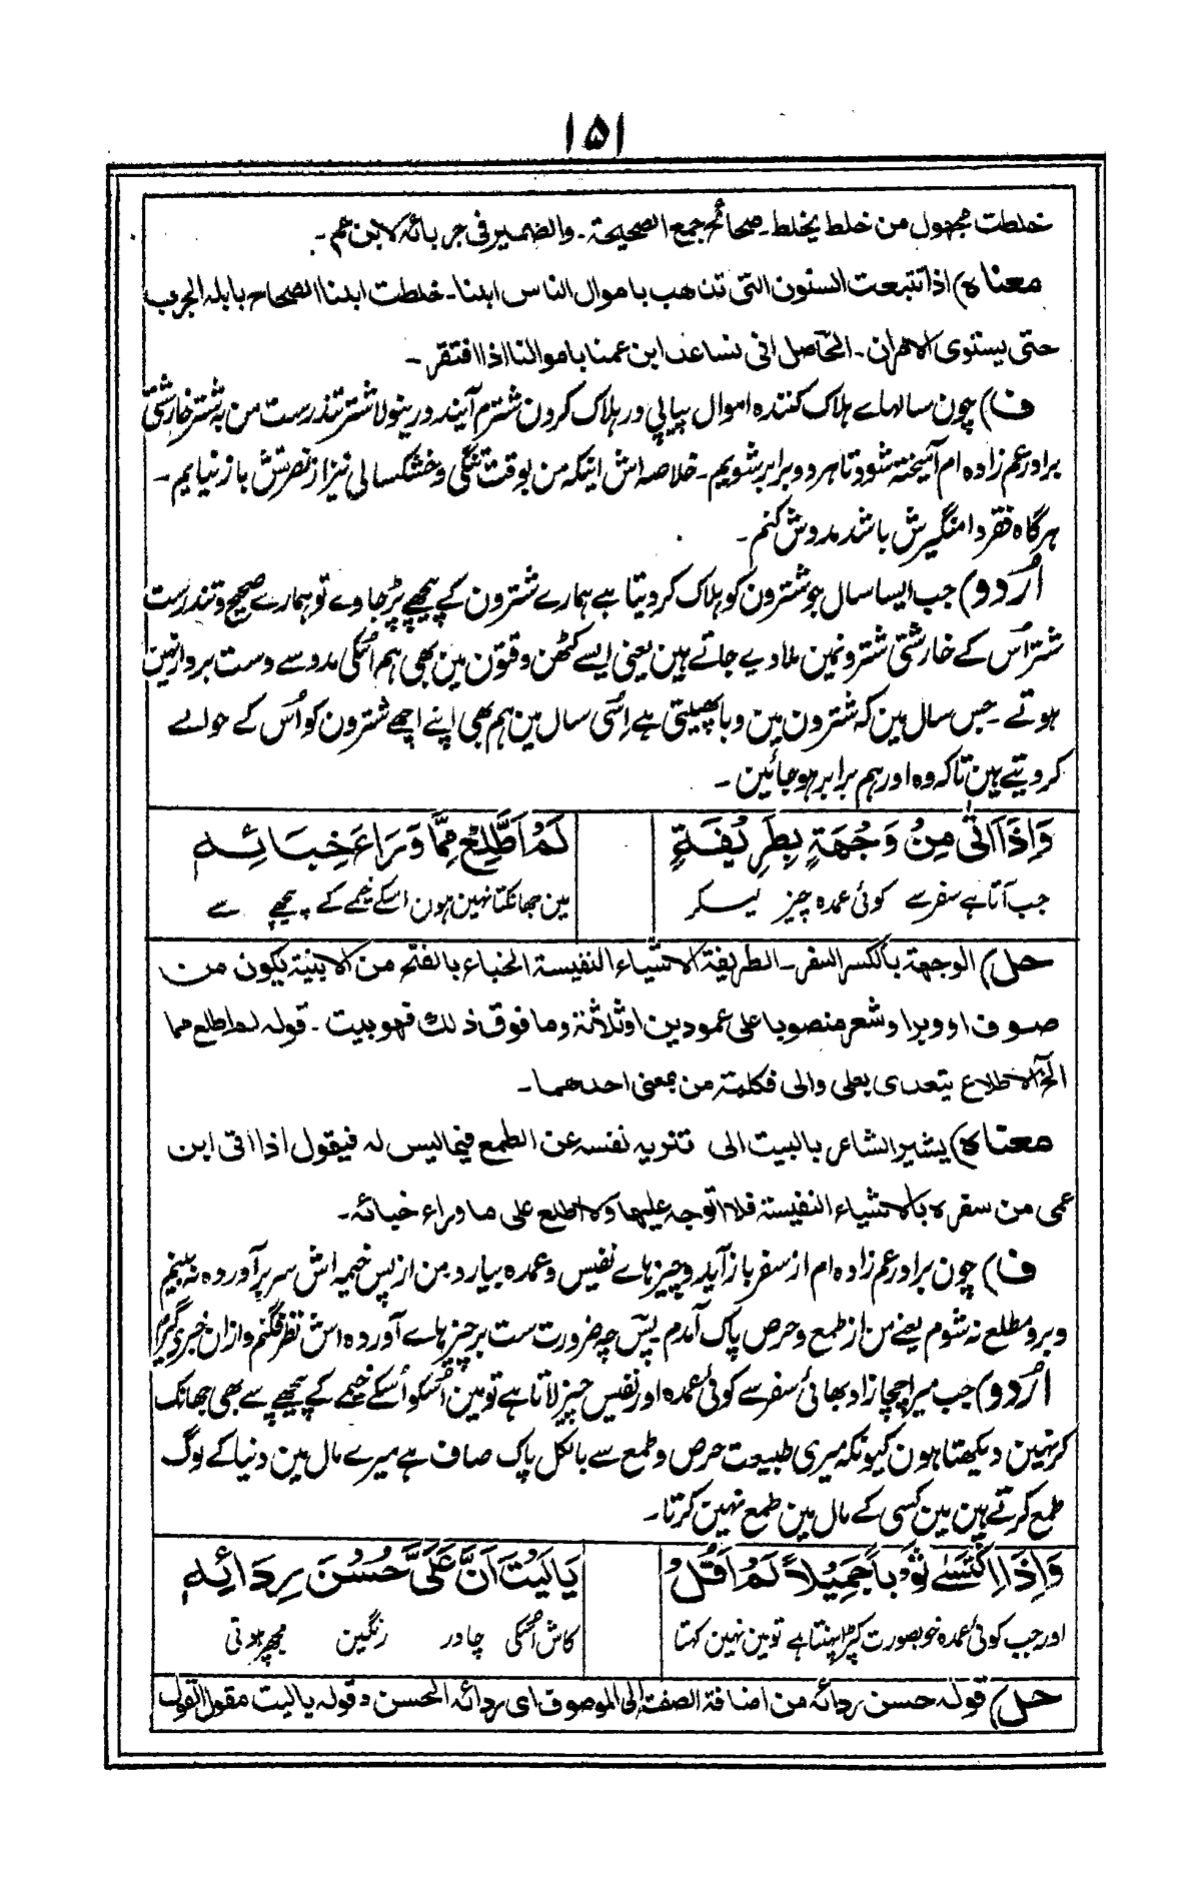 ۱۵۱
خلطت مجهول من خلط يخلط۔ صحائح جمع الصحيحة۔ والضمير فى جربائه لابن عم۔
معناه) اذا تتبعت السنون التى تذهب باموال الناس ابلنا۔ خلطت ابلنا الصحاح بابله الجرب
حتى يستوى الامران۔ الحاصل انى نساعد ابن عمنا باموالنا اذا افتقر۔
ف) چون سالہاے ہلاک کنندہ اموال پیاپی در ہلاک کردن شترم آیند درینولا شتر تندرست من بہ شتر خارشتی
برادر عم زادہ ام آمیختہ شود تا ہر دو برابر شویم۔ خلاصہ اش اینکہ من بوقت تنگی و خشکسالی نیز از نصرتش باز نیایم۔
ہرگاہ فقر دامنگیرش باشد مدوش کنم۔
اُردو) جب ایسا سال جو شترون کو ہلاک کردیتا ہے ہمارے شترون کے پیچھے پڑجاوے تو ہمارے صحیح و تندرست
شتر اُس کے خارشتی شترونمین ملا دیے جاتے ہین یعنی ایسے کٹھن وقتون مین بھی ہم اُسکی مدد سے دست بردار نہین
ہوتے۔ جس سال مین کہ شترون مین وبا پھیلتی ہے اسی سال مین ہم بھی اپنے اچھے شترون کو اُس کے حوالے
کردیتے ہین تاکہ وہ اور ہم برابر ہوجائین۔
وَاِذَا اَتٰى مِنْ وَجْهَةٍ بِطَرِيْفَةٍ لَمْ اَطَّلِعْ مِمَّا وَرَاءَ خِبَائِهٖ
جب آتا ہے سفر سے کوئی عمدہ چیز لیسکر مین جھانکتا نہین ہون اسکے خیمے کے پیچھے سے
حل) الوجهة بالكسر السفر۔ الطريفة الاشياء النفيسة الخباء بالفتح من الابنية يكون من
صوف او وبر او شعر منصوبا على عمودين او ثلاثة وما فوق ذلك فهو بيت۔ قوله لم اطلع مما
الخ الاطلاع يتعدى بعلى والى فكلمة من بمعنى احدهما۔
معناه) يشير الشاعر بالبيت الى تنزيه نفسه عن الطمع فيما ليس له فيقول اذا اتى ابن
عمى من سفره بالاشياء النفيسة فلا اتوجه عليها ولا اطلع على ما وراء خبائه۔
ف) چون برادر عم زادہ ام از سفر باز آید و چیزہاے نفیس و عمدہ بیارد من از پس خیمہ اش سر بر آوردہ نہ بینم
وبرو مطلع نہ شوم یعنے من از طمع و حرص پاک آمدم پس چہ ضرورت ست بر چیزہاے آوردہ اش نظر فگنم و ازان خبری گیرم
اُردو) جب میرا چچا زاد بھائی سفر سے کوئی عمدہ اور نفیس چیز لاتا ہے تو مین اُسکو اُسکے خیمے کے پیچھے سے بھی جھانک
کر نہین دیکھتا ہون کیونکہ میری طبیعت حرص و طمع سے بالکل پاک صاف ہے میرے مال مین دنیا کے لوگ
طمع کرتے ہین مین کسی کے مال مین طمع نہین کرتا۔
وَاِذَا اكْتَسٰى ثَوْبًا جَمِيْلًا لَمْ اَقُلْ يَا لَيْتَ اَنَّ عَلَيَّ حُسْنَ رِدَائِهٖ
اور جب کوئی عمدہ خوبصورت کپڑا پہنتا ہے تو مین نہین کہتا کاش اُسکی چادر رنگین مجھپر ہوتی
حل) قوله حسن ردائه من اضافة الصفة الى الموصوف اى ردائه الحسن وقوله يا ليت مقول القول